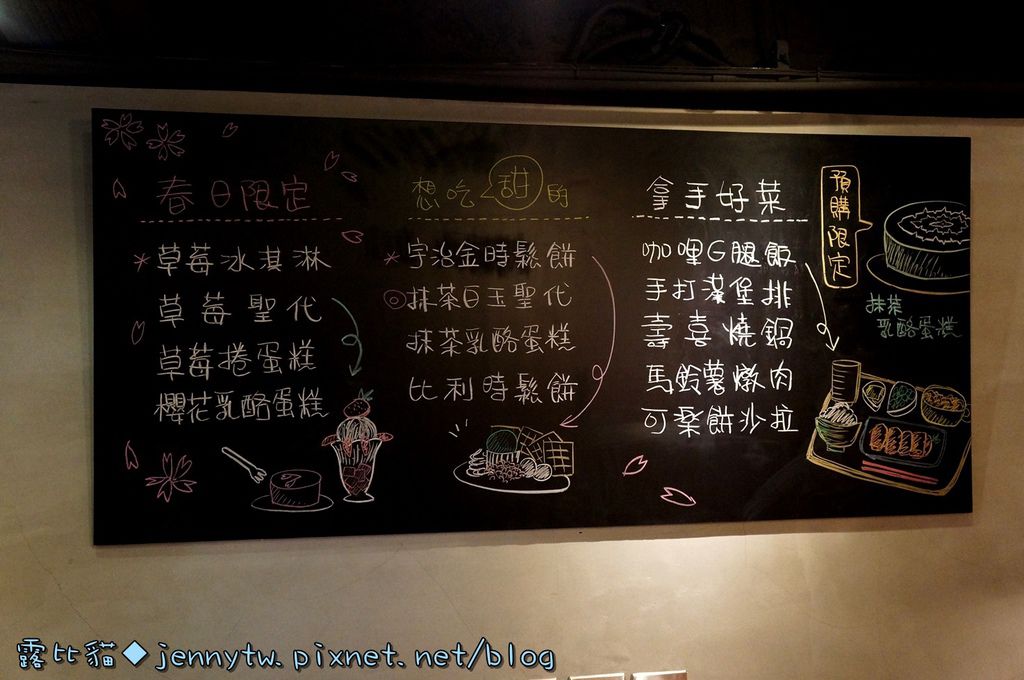 春日限定
草莓冰淇淋
草莓聖代
草莓捲蛋糕
櫻花乳酪蛋糕
想吃甜的
宇治金時鬆餅
抹茶白玉聖代
抹茶乳酪蛋糕
比利時鬆餅
拿手好菜
咖哩G腿飯
手打漢堡排
壽喜燒鍋
馬鈴薯燉肉
可髮餅沙拉
預購限定
抹茶
乳酪蛋糕
露比貓◆jennytw.pixnet.net/blog